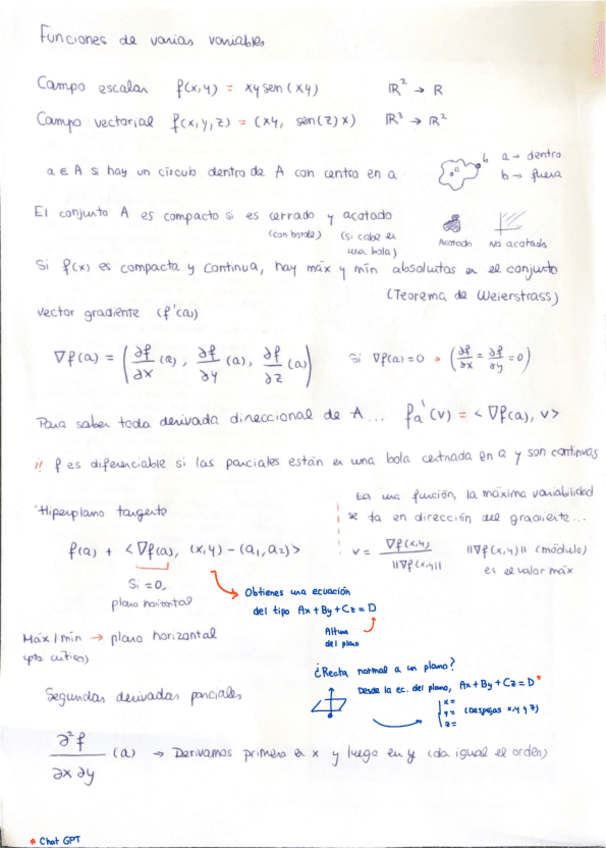 Funciones de varias variables
Campo escalar f(x,y) = xy sen(xy) ℝ² → ℝ
Campo vectorial f(x,y,z) = (xy, sen(z)x) ℝ³ → ℝ²
a ∈ A si hay un círculo dentro de A con centro en a
a
b
a → dentro
b → fuera
El conjunto A es compacto si es cerrado y acotado
(con borde) (si cabe en una bola)
Acotado No acotado
Si f(x) es compacta y continua, hay máx y mín absolutos en el conjunto
(Teorema de Weierstrass)
vector gradiente (f'(a))
∇f(a) = (∂f/∂x (a), ∂f/∂y (a), ∂f/∂z (a)) Si ∇f(a) = 0 → (∂f/∂x = ∂f/∂y = 0)
Para saber toda derivada direccional de A... fa'(v) = <∇f(a), v>
!! f es diferenciable si las parciales están en una bola centrada en a y son continuas
Hiperplano tangente
f(a) + <∇f(a), (x,y) - (a₁,a₂)>
Si = 0,
plano horizontal
En una función, la máxima variabilidad
* ta en dirección del gradiente...
v = ∇f(x,y) / ||∇f(x,y)|| ||∇f(x,y)|| (módulo)
es el valor máx
Obtienes una ecuación
del tipo Ax + By + Cz = D
Altura
del plano
Máx/mín → plano horizontal
(pto crítico)
¿Recta normal a un plano?
Desde la ec. del plano, Ax + By + Cz = D*
x =
y = (Despejas x, y y z)
z =
Segundas derivadas parciales
∂²f/∂x ∂y (a) → Derivamos primero en x y luego en y (da igual el orden)
* Chat GPT